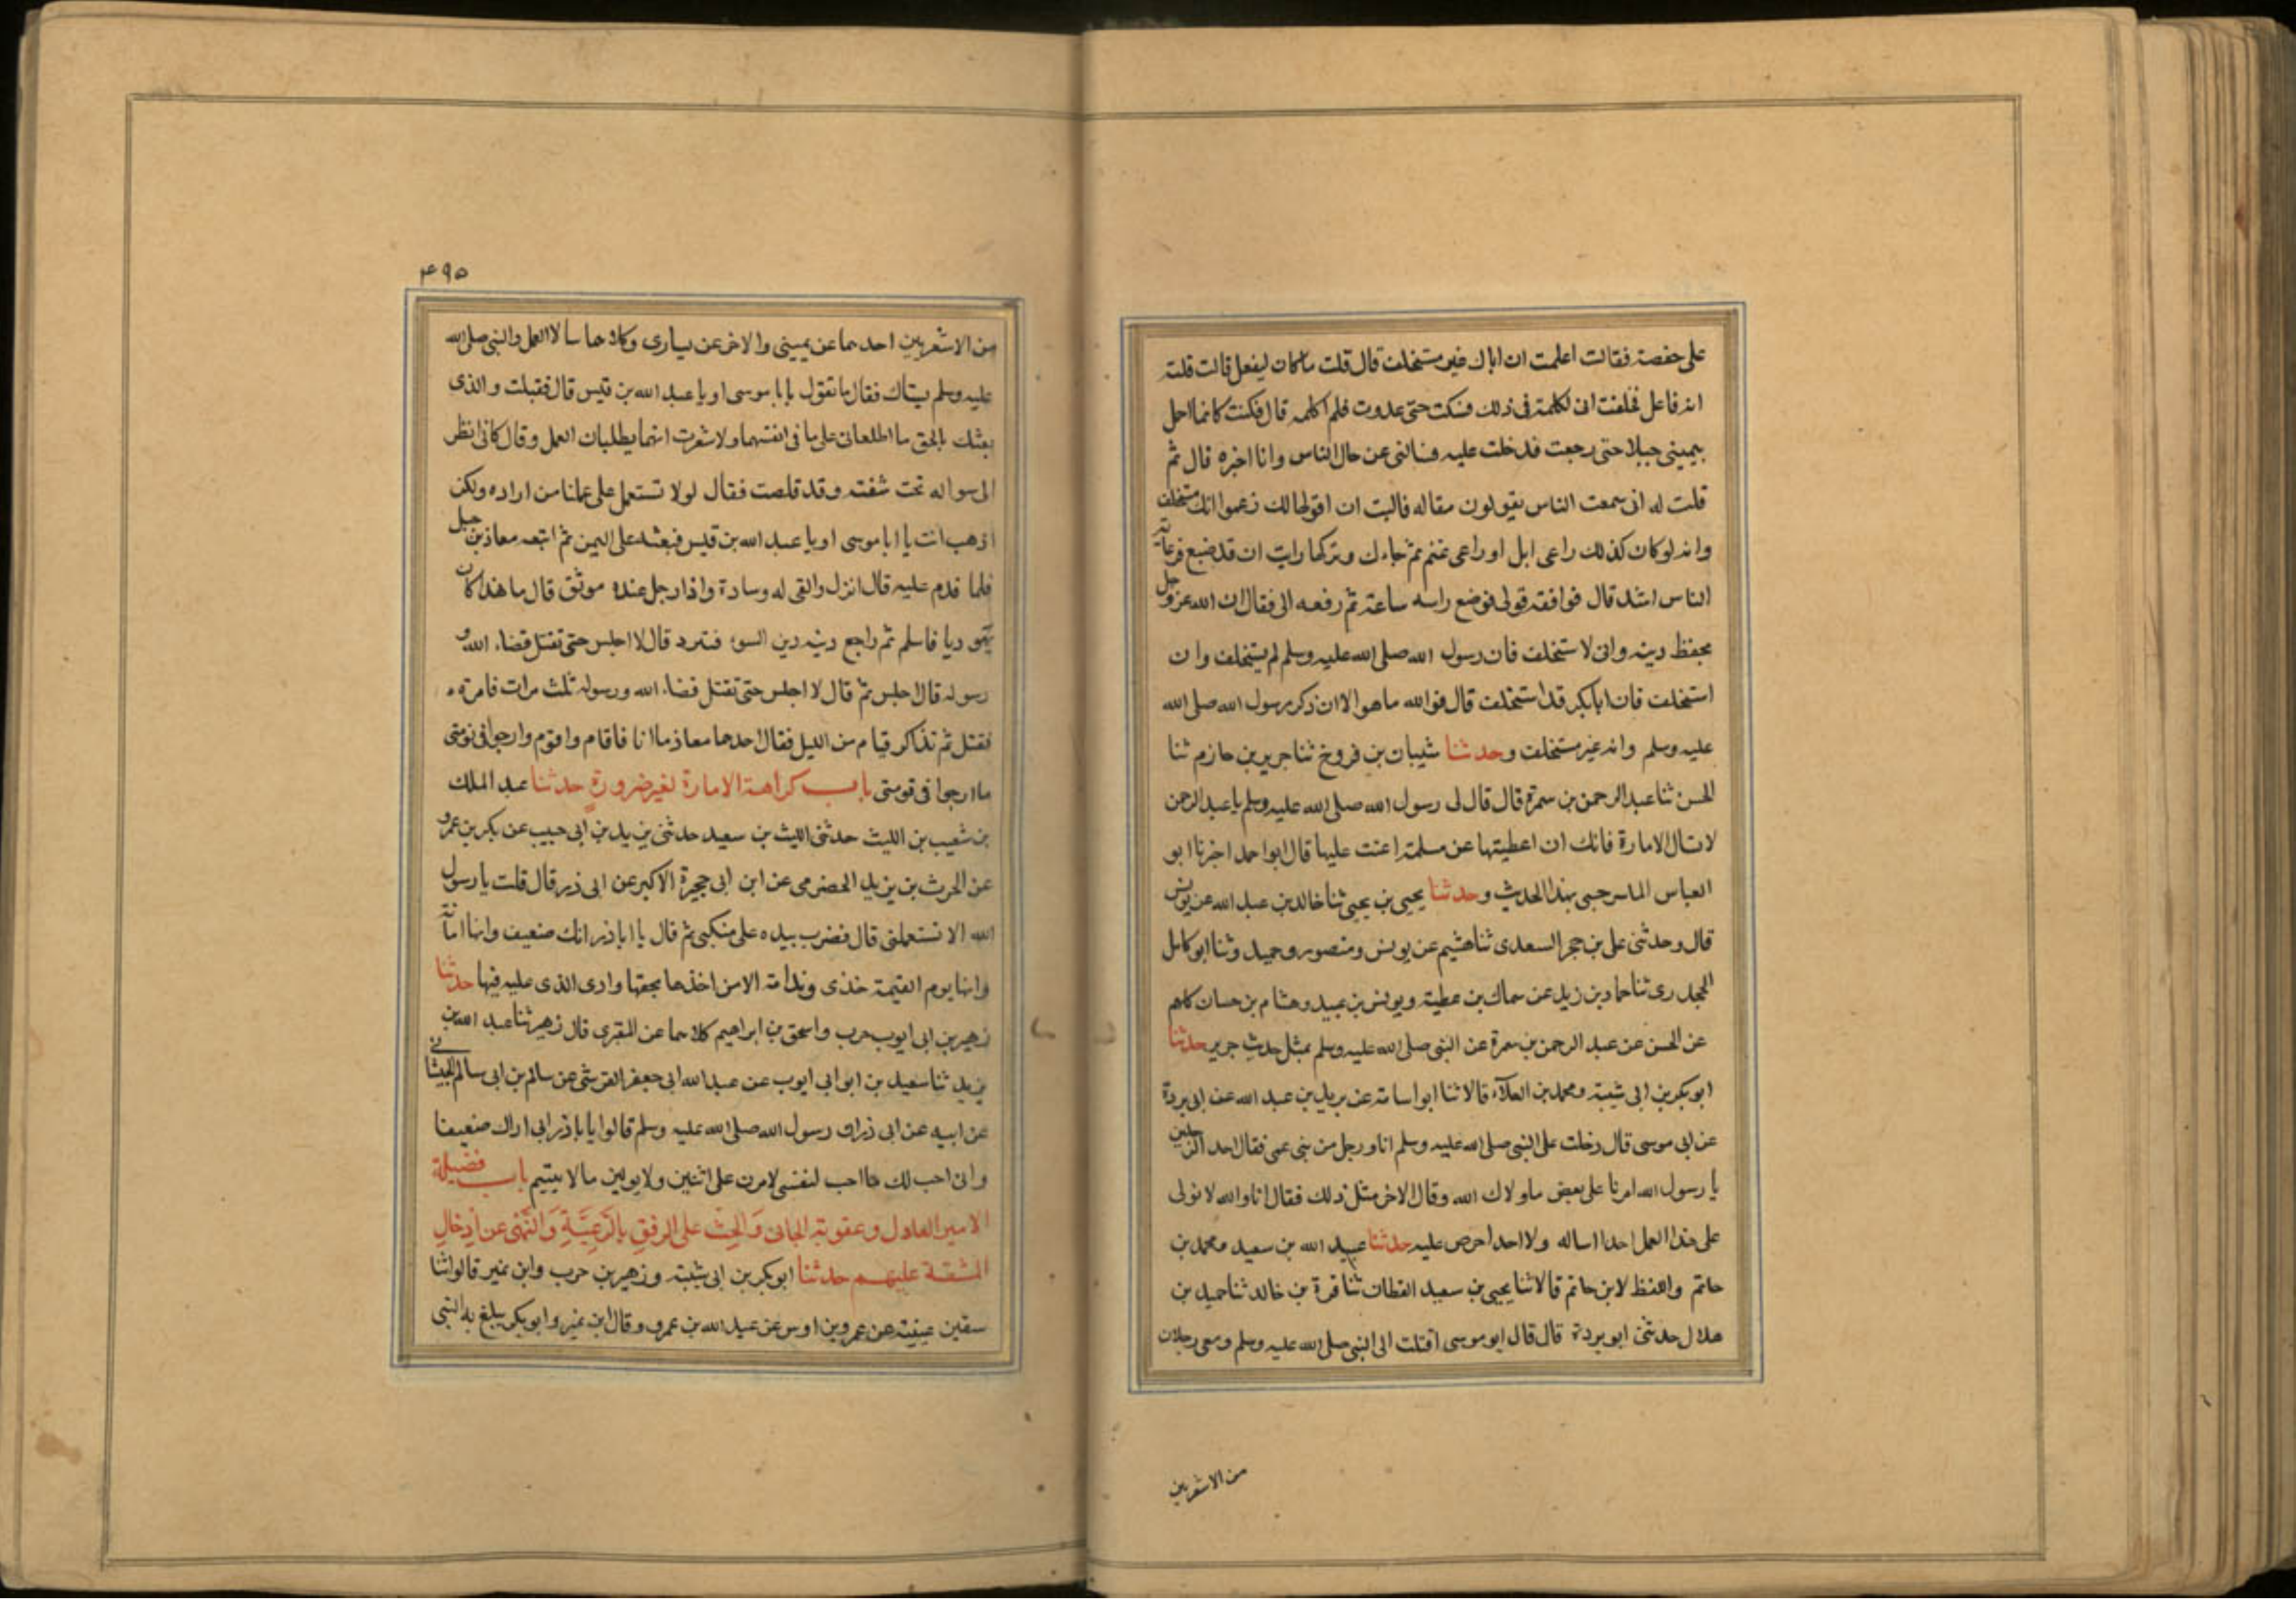 على حفصة فقالت اعلمت ان اباك غير مستخلف قال قلت ما كان ليفعل قالت قلته
انه فاعل فحلفت انى لكلمته فى ذلك فسكت حتى غدوت فلم اكلمه قال فكنت كانما احل
بيمينى جبلا حتى رجعت فدخلت عليه فسالنى عن حال الناس وانا اخبره قال ثم
قلت له انى سمعت الناس يقولون مقاله فاليت ان اقولها لك زعموا انك مستخلف
وانه لو كان كذلك راعى ابل او راعى غنم ثم جاءك وتركها رايت ان قد ضيع فرعاية
الناس اشد قال فوافقه قولى فوضع راسه ساعة ثم رفعه الى فقال ان الله عز وجل
يحفظ دينه وانى لا ستخلف فان رسول الله صلى الله عليه وسلم لم يستخلف وان
استخلف فان ابا بكر قد استخلف قال فوالله ما هو الا ان ذكر رسول الله صلى الله
عليه وسلم وانه غير مستخلف وحدثنا شيبان بن فروخ ثنا جرير بن حازم ثنا
الحسن ثنا عبد الرحمن بن سمرة قال قال لى رسول الله صلى الله عليه وسلم يا عبد الرحمن
لا تسال الامارة فانك ان اعطيتها عن مسلمة اعنت عليها قال ابو احمد اخبرنا ابو
العباس الماسرجسى بهذا الحديث وحدثنا يحيى بن يحيى ثنا خالد بن عبد الله عن يونس
قال وحدثنى على بن حجر السعدى ثنا هشيم عن يونس ومنصور وحميد وثنا ابو كامل
الجحدرى ثنا حماد بن زيد عن سماك بن عطية ويونس بن عبيد وهشام بن حسان كلهم
عن الحسن عن عبد الرحمن بن سمرة عن النبى صلى الله عليه وسلم بمثل حديث جرير حدثنا
ابو بكر بن ابى شيبة ومحمد بن العلاء قالا ثنا ابو اسامة عن بريد بن عبد الله عن ابى بردة
عن ابى موسى قال دخلت على النبى صلى الله عليه وسلم انا ورجل من بنى عمى فقال احد الرجلين
يا رسول الله امرنا على بعض ما ولاك الله وقال الاخر مثل ذلك فقال انا والله لا نولى
على هذا العمل احدا اساله ولا احدا حرص عليه حدثنا عبيد الله بن سعيد ومحمد بن
حاتم واللفظ لابن حاتم قالا ثنا يحيى بن سعيد القطان ثنا قرة بن خالد ثنا حميد بن
هلال حدثنى ابو بردة قال قال ابو موسى اقبلت الى النبى صلى الله عليه وسلم ومعى رجلان
من الاشعريين
۴۹۵
من الاشعريين احدهما عن يمينى والاخر عن يسارى وكلاهما سالا العمل والنبى صلى الله
عليه وسلم يستاك فقال ما تقول يا با موسى او يا عبد الله بن قيس قال فقلت والذى
بعثك بالحق ما اطلعانى على ما فى انفسهما ولا شعرت انهما يطلبان العمل وقال كانى انظر
الى سواكه تحت شفته وقد قلصت فقال لو لا تستعمل على عملنا من اراده ولكن
اذهب انت يا ابا موسى او يا عبد الله بن قيس فبعثه على اليمن ثم اتبعه معاذ بن جبل
فلما قدم عليه قال انزل والقى له وسادة واذا رجل عنده موثق قال ما هذا كان
يهوديا فاسلم ثم راجع دينه دين السوء فتهود قال لا اجلس حتى تقتل قضاء الله و
رسوله قال اجلس ثم قال لا اجلس حتى تقتل قضاء الله ورسوله ثلث مرات فامر به
فقتل ثم تذاكر قيام من الليل فقال احدهما معاذ ما انا فاقام واقوم وارجوا فى نومتى
ما ارجوا فى قومتى باب كراهة الامارة لغير ضرورة حدثنا عبد الملك
بن شعيب بن الليث حدثنى الليث بن سعيد حدثنى يزيد بن ابى حبيب عن بكر بن عمرو
عن الحرث بن يزيد الحضرمى عن ابن ابى حجيرة الاكبر عن ابى ذر قال قلت يا رسول
الله الا تستعملنى قال فضرب بيده على منكبى ثم قال يا ابا ذر انك ضعيف وانها امانة
وانها يوم القيمة خذى وندامة الا من اخذها بحقها وادى الذى عليه فيها حدثنا
زهير بن ابى ايوب حرب واسحق بن ابراهيم كلاهما عن المقرى قال زهير ثنا عبد الله بن
يزيد ثنا سعيد بن ابو ابى ايوب عن عبد الله ابى جعفر القرشى عن سالم بن ابى سالم الجيشانى
عن ابيه عن ابى ذر ان رسول الله صلى الله عليه وسلم قالوا يا با ذر انى اراك ضعيفا
وانى احب لك ما احب لنفسى لا مرن على اثنين ولا يولين مالا يتيم باب فضيلة
الامير العادل وعقوبة الجائى والحث على الرفق بالرعية والنهى عن ادخال
المشقة عليهم حدثنا ابو بكر بن ابى شيبة وزهير بن حرب وابن نمير قالوا ثنا
سفين عيينة عن عمرو بن اوس عن عبد الله بن عمرو وقال ابن نمير وابو بكر يبلغ به النبى